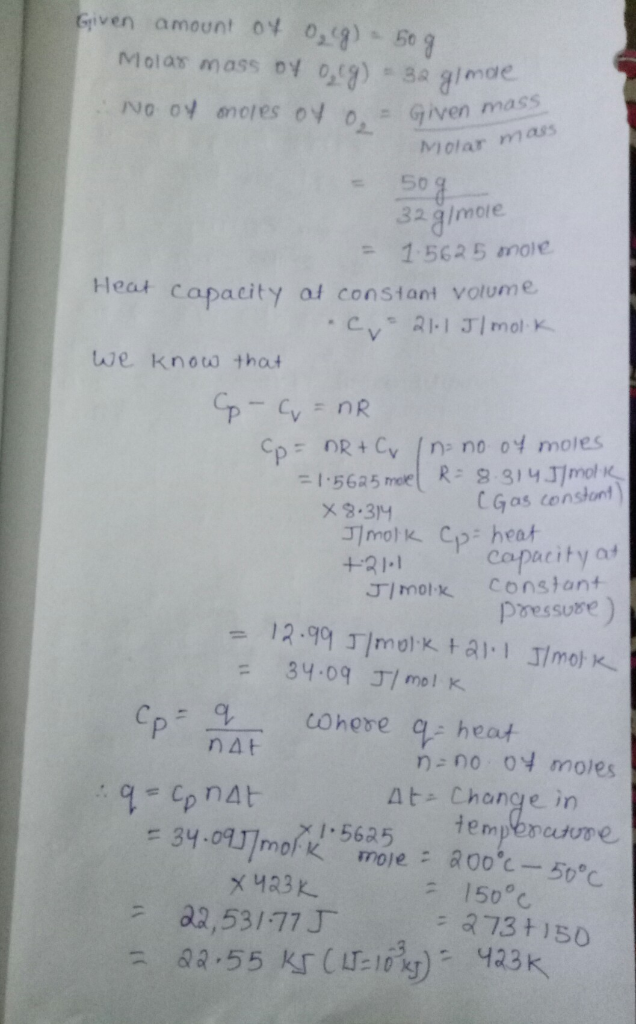 Given amount of O₂(g) = 50 g
Molar mass of O₂(g) = 32 g/mole
∴ No of moles of O₂ = Given mass
Molar mass
= 50 g
32 g/mole
= 1.5625 mole
Heat capacity at constant volume
• Cv = 21.1 J/mol·K
We know that
Cp - Cv = nR
Cp = nR + Cv ( n = no of moles
= 1.5625 mole R = 8.314 J/mol·K
× 8.314 (Gas constant)
J/mol k Cp = heat
+21.1 capacity at
J/mol·k constant
pressure)
= 12.99 J/mol·k + 21.1 J/mol k
= 34.09 J/mol k
Cp = q where q = heat
nΔt n = no of moles
∴ q = Cp nΔt Δt = Change in
= 34.09 J/mol k × 1.5625 temperature
mole = 200°c - 50°c
× 423 k = 150°c
= 22,531.77 J = 273 + 150
= 22.55 KJ (1J = 10⁻³ kJ) = 423 K